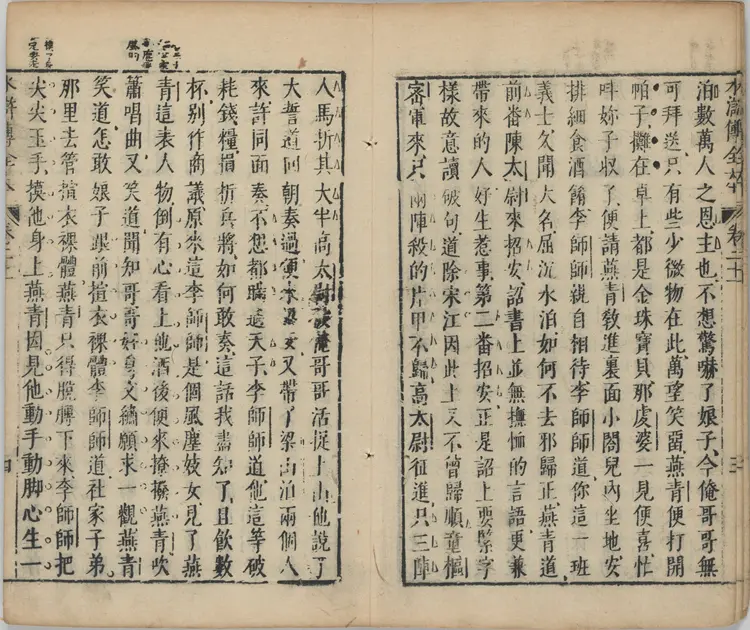 泊數萬人之恩主也不想驚嚇了娘子今俺哥哥無
可拜送只有些少微物在此萬望笑留燕青便打開
帕子攤在卓上都是金珠寶貝那虔婆一見便喜忙
呌妳子收了便請燕青敎進裏面小閣兒內坐地安
排細食酒餚李師師親自相待李師師道你這一班
義士久聞大名屈沉水泊如何不去邪歸正燕青道
前番陳太尉來招安詔書上並無撫恤的言語更兼
帶來的人好生惹事第二番招安正是詔上要緊字
樣故意讀破句道除宋江因此上又不曾歸順童樞
密軍來只兩陣殺的片甲不歸高太尉征進只三陣
人馬折其大半高太尉被俺哥哥活捉上山他說了
大誓道回朝奏過便來招安又帶了梁山泊兩個人
來許同面奏不想都瞞過天子李師師道他這等破
耗錢糧損折兵將如何敢奏這話我盡知了且飲數
杯別作商議原來這李師師是個風塵妓女見了燕
青這表人物倒有心看上他酒後便來撩撥燕青吹
簫唱曲又笑道聞知哥哥好身文繡願求一觀燕青
笑道怎敢娘子跟前揎衣裸體李師師道社家子弟
那里去管揎衣裸體燕青只得脫膊下來李師師把
尖尖玉手摸他身上燕青因見他動手動脚心生一